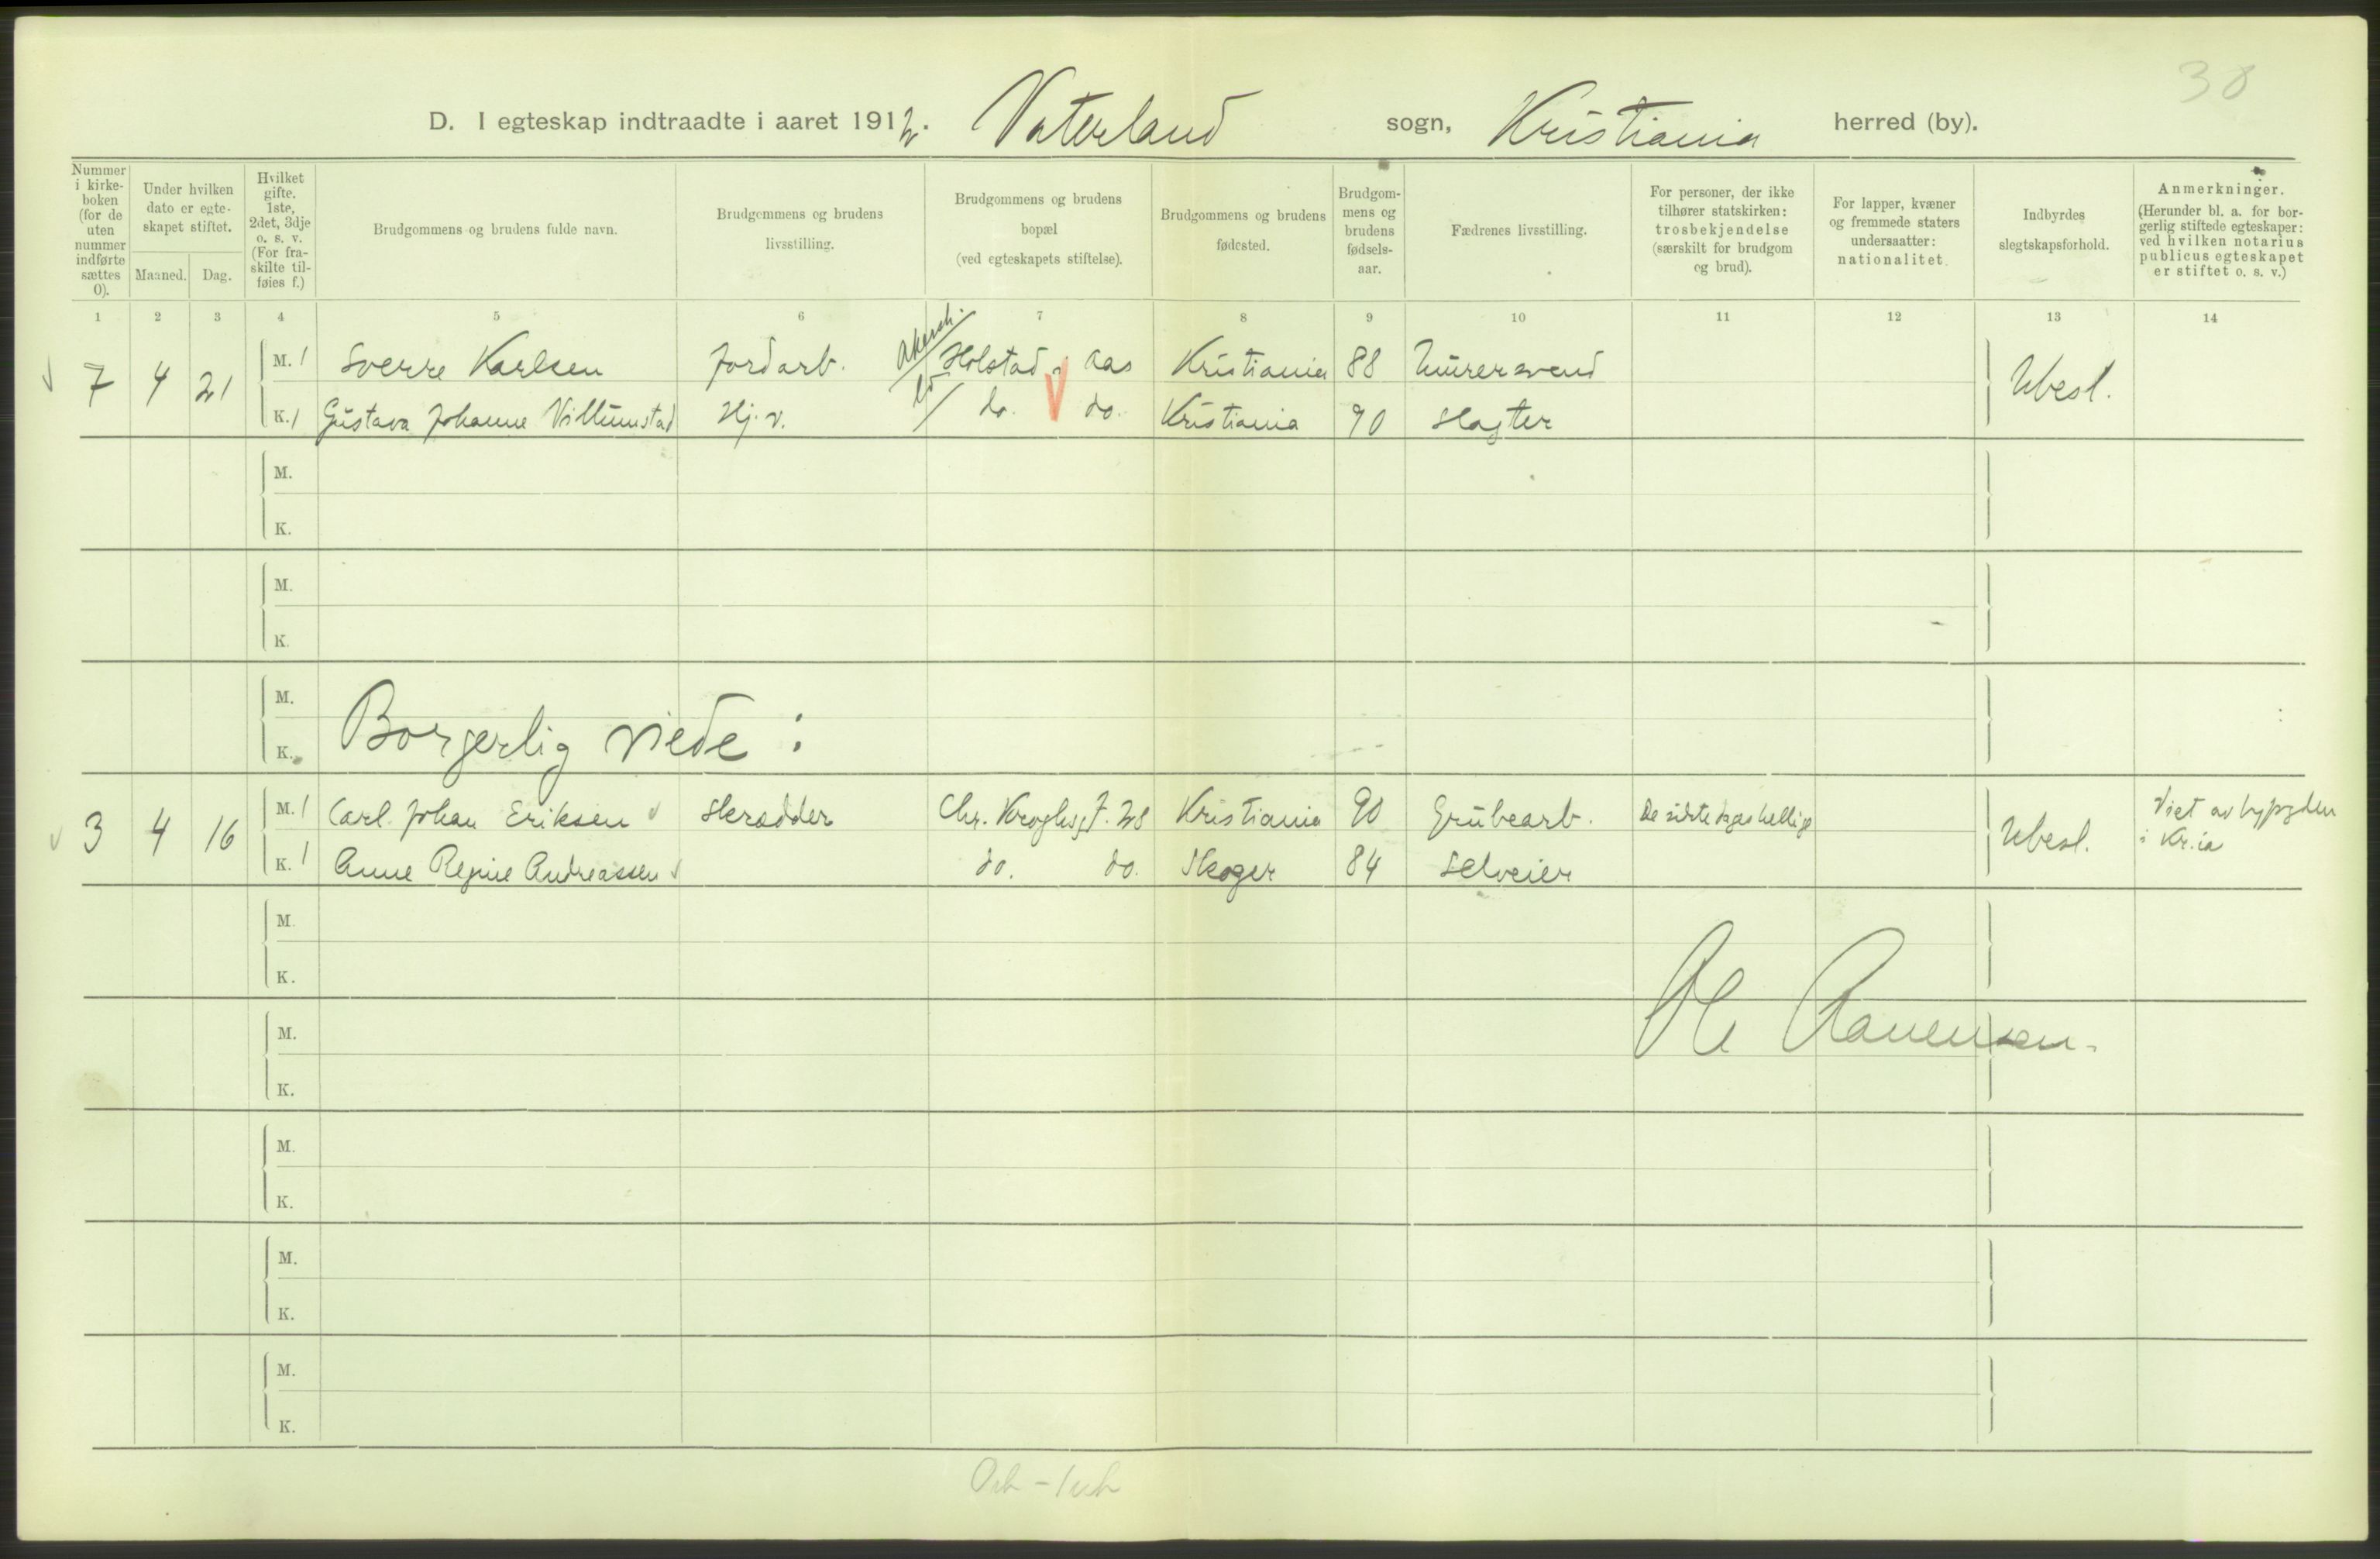 30
D. I egteskap indtraadte i aaret 1912. Vaterland sogn, Kristiania herred (by).
Nummer i kirkeboken (for de uten nummer indførte sættes 0).
Under hvilken dato er egteskapet stiftet.
Maaned. Dag.
Hvilket gifte. 1ste, 2det, 3dje o. s. v. (For fraskilte tilføies f.)
Brudgommens og brudens fulde navn.
Brudgommens og brudens livsstilling.
Brudgommens og brudens bopæl (ved egteskapets stiftelse).
Brudgommens og brudens fødested.
Brudgommens og brudens fødselsaar.
Fædrenes livsstilling.
For personer, der ikke tilhører statskirken: trosbekjendelse (særskilt for brudgom og brud).
For lapper, kvæner og fremmede staters undersaatter: nationalitet.
Indbyrdes slegtskapsforhold.
Anmerkninger. (Herunder bl. a. for borgerlig stiftede egteskaper: ved hvilken notarius publicus egteskapet er stiftet o. s. v.)
1 2 3 4 5 6 7 8 9 10 11 12 13 14
7 4 21 M. 1 Sverre Karlsen Jordarb. Akersh. Holstad, Aas Kristiania 88 Murersvend Ubesl.
K. 1 Gustava Johanne Villumstad Hj. v. do. do. Kristiania 90 Slagter
M.
K.
M.
K.
M.
K. Borgerlig viede:
3 4 16 M. 1 Carl Johan Eriksen Skrædder Chr. Kroghsgt. 28 Kristiania 90 Grubearb. De sidste dages hellige Ubesl. Viet av byfogden i Kr.ia
K. 1 Anne Regine Andreassen do. do. Skoger 84 Selveier
M.
K.
M.
K.
M.
K.
M.
K.
M.
K.